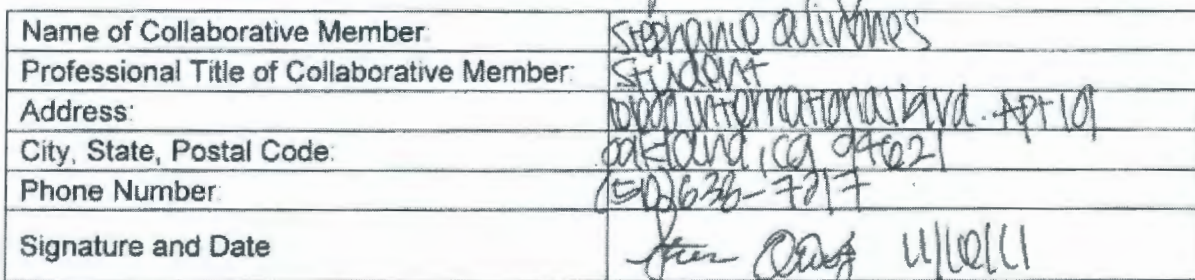 Name of Collaborative Member: Stephanie
Professional Title of Collaborative Member: Student
Address: International blvd. Apt 19
City, State, Postal Code: oakland, ca 94621
Phone Number (510)638-7217
Signature and Date